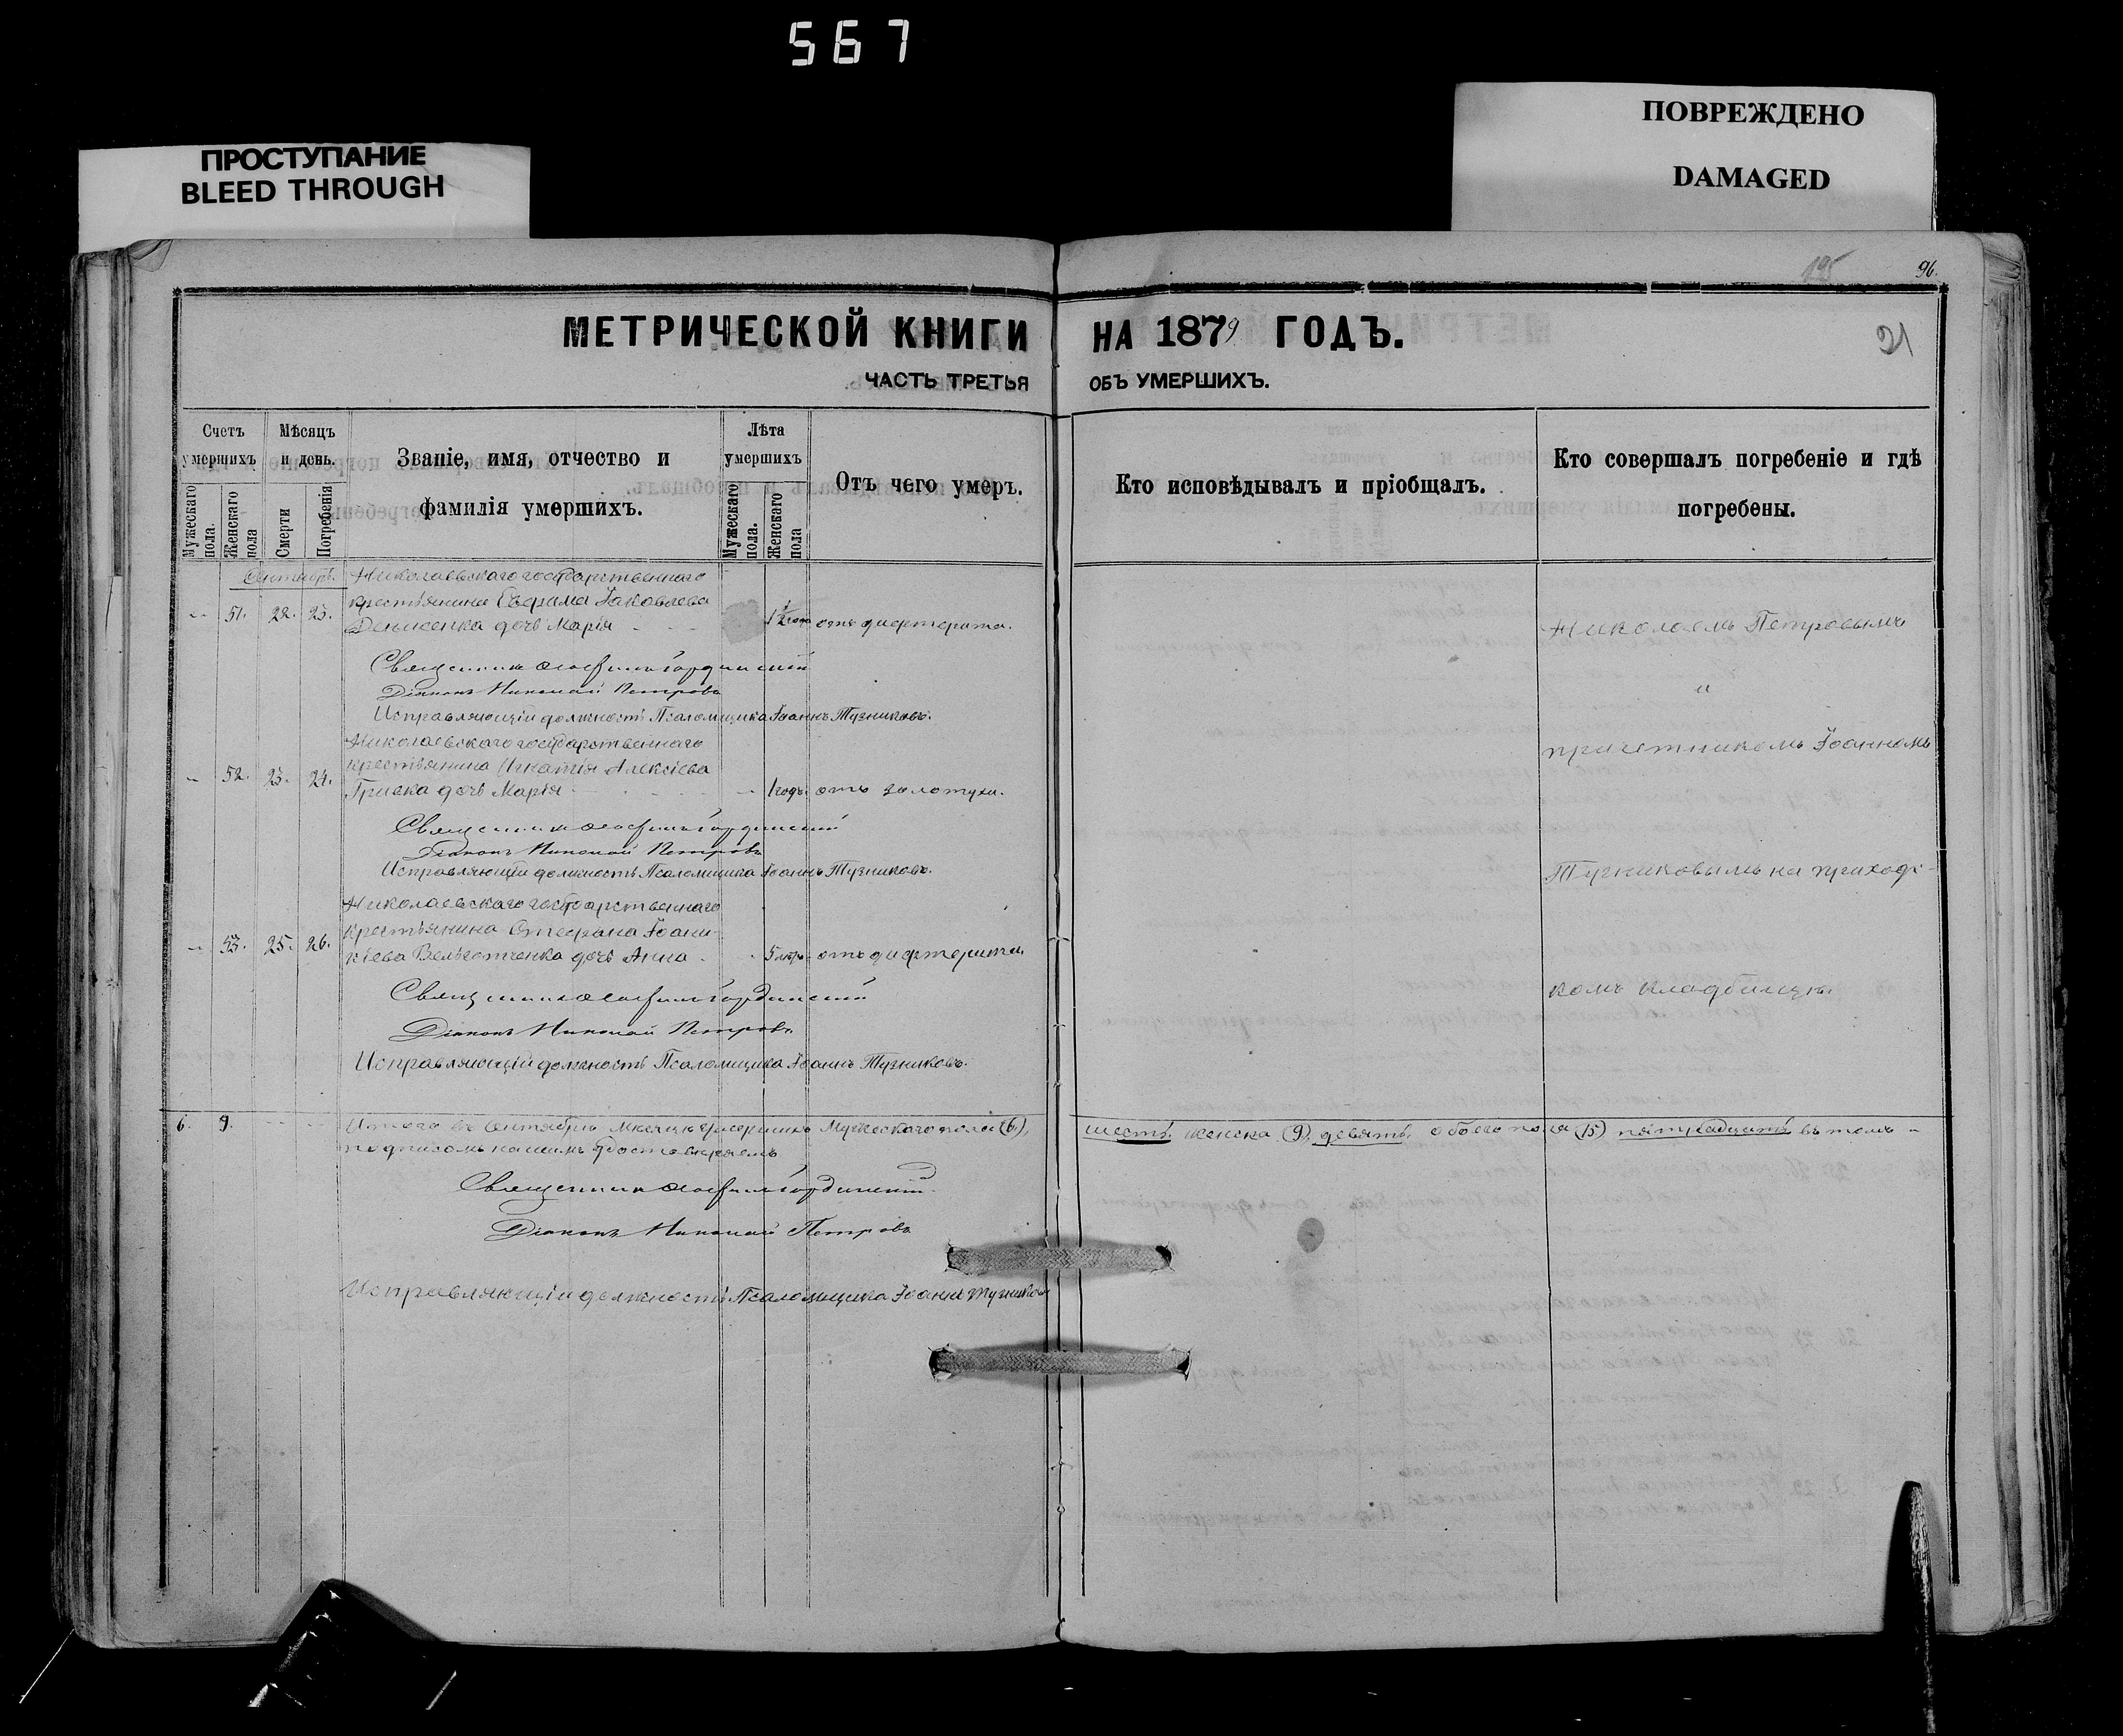 567
ПРОСТУПАНИЕ
BLEED THROUGH
ПОВРЕЖДЕНО
DAMAGED
96.
21
МЕТРИЧЕСКОЙ КНИГИ НА 1879 ГОДЪ.
ЧАСТЬ ТРЕТЬЯ ОБЪ УМЕРШИХЪ.
Счетъ умершихъ
Мужескаго пола.
Женскаго пола
Мѣсяцъ и день.
Смерти
Погребенія
Званіе, имя, отчество и фамилія умершихъ.
Лѣта умершихъ
Мужескаго пола.
Женскаго пола
Отъ чего умеръ.
Кто исповѣдывалъ и пріобщалъ.
Кто совершалъ погребеніе и гдѣ погребены.
Николаевскаго государственнаго
51. 22. 23. крестьянина Ефрима Іаковлева
Денисенка дочь Марія 1 1/2 года отъ дифтерита.
Священникъ
Діаконъ Николай Петровъ
Исправляющій должность Псаломщика Іоаннъ
Николаевскаго государственнаго
52. 23. 24. крестьянина Игнатія Алексіева
дочь Марія 1 годъ. отъ золотухи.
Священникъ
Діаконъ Николай Петровъ
Исправляющій должность Псаломщика Іоаннъ
Николаевскаго государственнаго
53. 25. 26. крестьянина Стефана Іоани-
кіева дочь Анна 5 отъ дифтерита
Священникъ
Діаконъ Николай Петровъ
Исправляющій должность Псаломщика Іоаннъ
Николаемъ Петровымъ
и
причетникомъ Іоанномъ
на приходс-
комъ кладбищѣ.
6. 9. Итого въ Сентябрѣ мѣсяцѣ умершихъ Мужескаго пола (6), шесть, женска (9) девять, обоего пола (15) пятнадцать въ томъ
подписомъ нашимъ удостовѣряемъ
Священникъ
Діаконъ Николай Петровъ
Исправляющій должность Псаломщика Іоаннъ